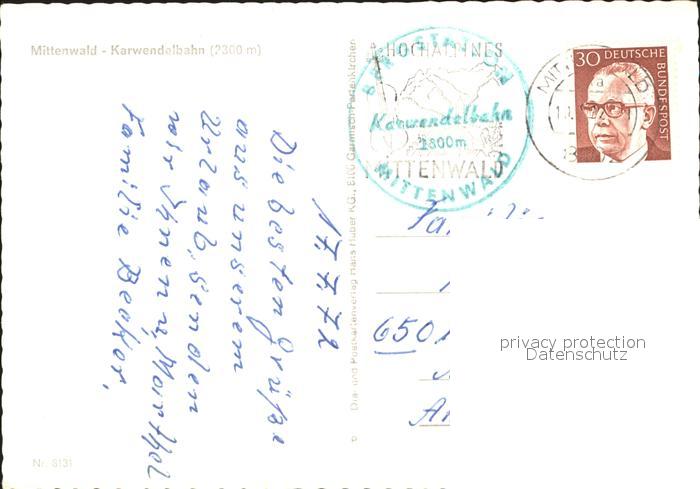 Mittenwald - Karwendelbahn (2300 m)
17.7.72
Die besten Grüße
aus unserem
Urlaub, senden
wir Ihnen u. Marthel
Familie Becker,
Nr. 8131
Drei- und Postkartenverlag Hans Huber KG., 8100 Garmisch-Partenkirchen
HOCHALPINES
MITTENWALD
BERGSTATION
Karwendelbahn
2300m
MITTENWALD
MITTENWALD
a
30 DEUTSCHE
BUNDESPOST
Fa.
650
privacy protection
Datenschutz